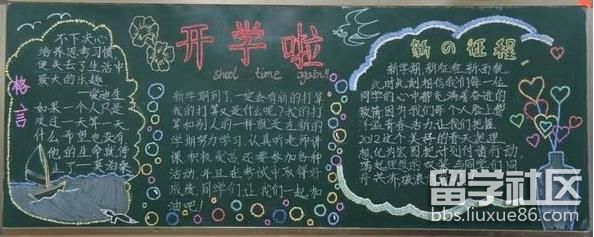 格言
不下决心
培养思考习惯
便失去了生活中
最大的乐趣
—爱迪生
如果一个人只是
度过一天算一天
什么希望也没有
他的生命就停
止了—莫泊桑
开学啦
shool time again!!
新学期到了一定会有新的打算
我的打算是什么呢?我的打
算和别人的一样就是在新的
学期努力学习,认真听老师讲
课积极发言还要参加各种
活动,并且在考试中取得好
成绩,同学们让我们一起加
油吧!
新の征程
新学期,新征程,新函数..
此时此刻相信我们每一位
同学的心中都充满着奋进的
激情因为我们每个人脸上都
洋溢青春活力让我们把握
2012这个美好的春天把理
想化为宏图把计划付诸行动,
希望老师的
舟共济破浪
留学社区
bbs.liuxue86.com